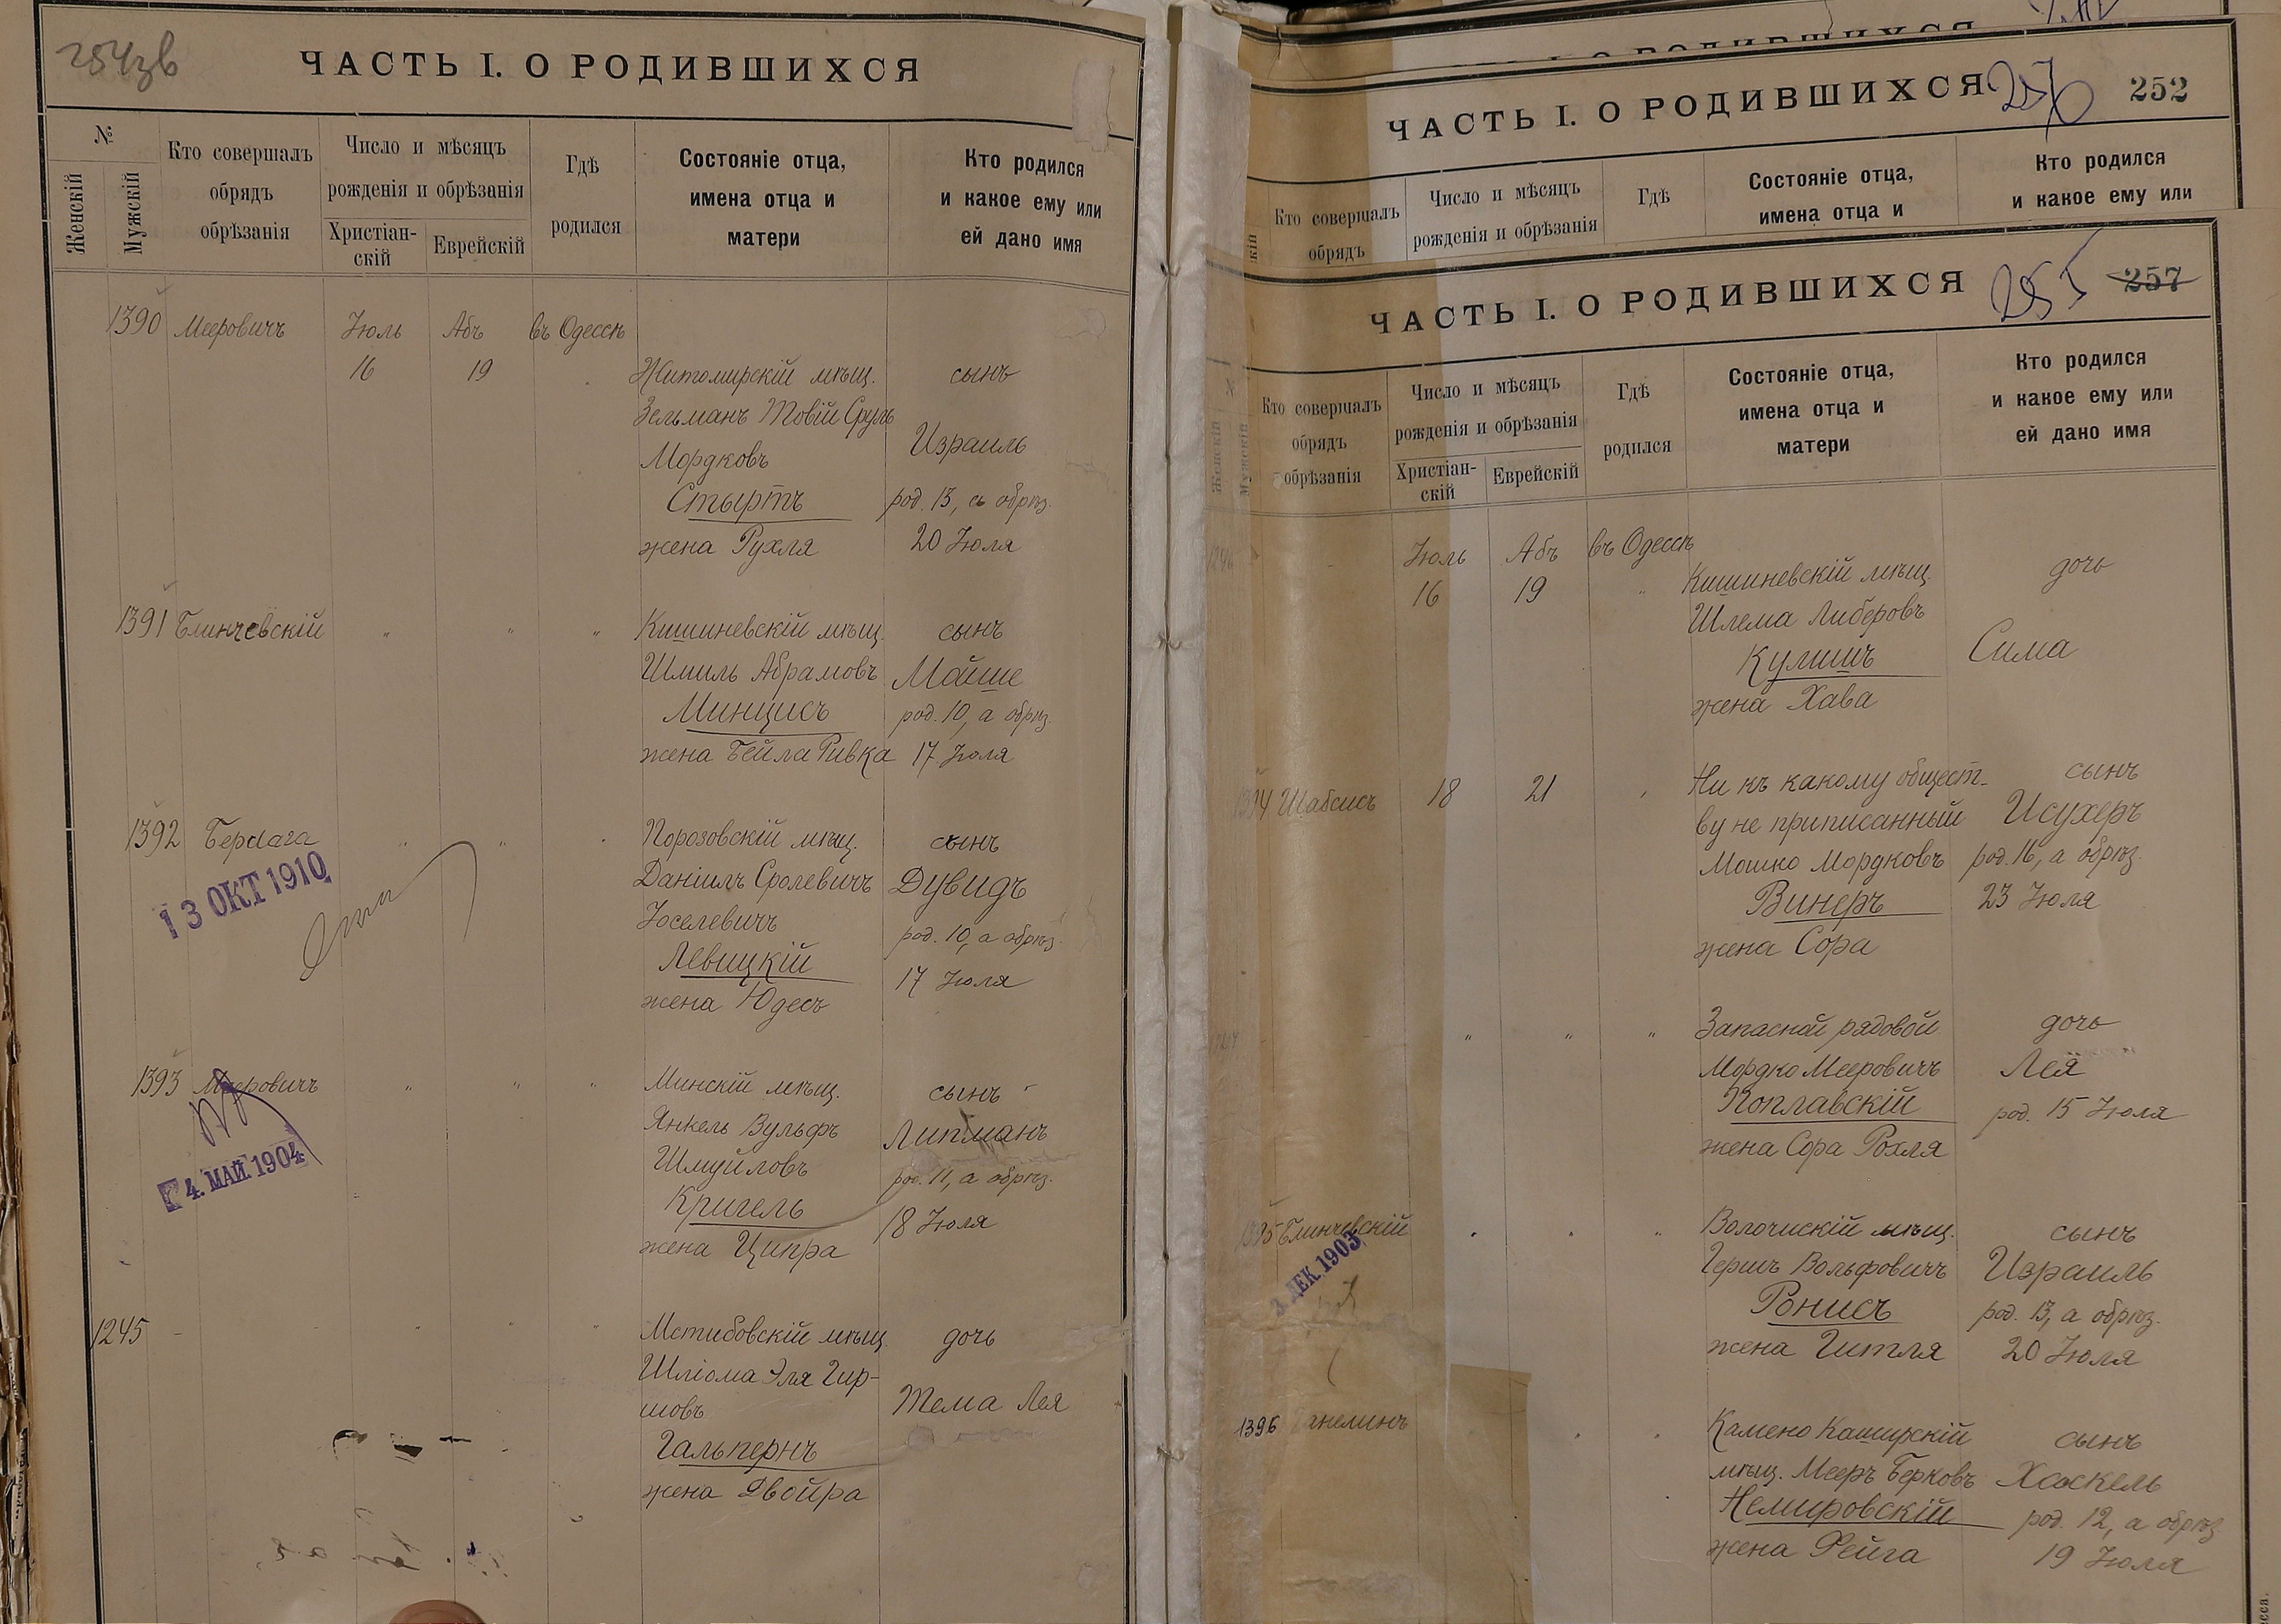 254зв
ЧАСТЬ I. О РОДИВШИХСЯ
№
Женскій
Мужскій
Кто совершалъ
обрядъ
обрѣзанія
Число и мѣсяцъ
рожденія и обрѣзанія
Христіан-
скій
Еврейскій
Гдѣ
родился
Состояніе отца,
имена отца и
матери
Кто родился
и какое ему или
ей дано имя
1390 Мееровичъ Іюль Абъ въ Одессѣ
16 19
Житомирскій мѣщ. сынъ
Зельманъ Товій Сруль
Мордковъ Израиль
Стыртъ род. 13, а обрѣз.
жена Рухля 20 Іюля
1391 Блинчевскій " " " Кишиневскій мѣщ. сынъ
Шмиль Абрамовъ Мойше
Минцисъ род. 10, а обрѣз.
жена Бейла Ривка 17 Іюля
1392 Берлага " " " Порозовскій мѣщ. сынъ
13 ОКТ 1910
Даніилъ Сролевичъ Дувидъ
Іоселевичъ род. 10, а обрѣз.
Левицкій 17 Іюля
жена Юдесъ
1393 Мееровичъ " " " Минскій мѣщ. сынъ
4. МАЙ 1904
Янкель Вульфъ Липманъ
Шмуйловъ род. 11, а обрѣз.
Кригель 18 Іюля
жена Ципра
1245 - - " " " Мстибовскій мѣщ. дочь
Шліома Эля Гир-
шовъ Тема Лея
Гальпернъ
жена Двойра
ЧАСТЬ I. О РОДИВШИХСЯ 252
Кто совершалъ
обрядъ
Число и мѣсяцъ
рожденія и обрѣзанія
Гдѣ
Состояніе отца,
имена отца и
Кто родился
и какое ему или
ЧАСТЬ I. О РОДИВШИХСЯ 255 257
Женскій
Мужскій
Кто совершалъ
обрядъ
обрѣзанія
Число и мѣсяцъ
рожденія и обрѣзанія
Христіан-
скій
Еврейскій
Гдѣ
родился
Состояніе отца,
имена отца и
матери
Кто родился
и какое ему или
ей дано имя
1246 - Іюль Абъ въ Одессѣ
16 19 " Кишиневскій мѣщ. дочь
Шлема Либеровъ
Кулишъ Сима
жена Хава
1394 Шабсисъ 18 21 " Ни къ какому общест- сынъ
ву не приписанный Исухеръ
Мошко Мордковъ род. 16, а обрѣз.
Винеръ 23 Іюля
жена Сора
1247 " " " Запасной рядовой дочь
Мордко Мееровичъ Лея
Поплавскій род. 15 Іюля
жена Сора Рохля
1395 Блинчевскій " " " Волочискій мѣщ. сынъ
3. ДЕК. 1903
Гершъ Вольфовичъ Израиль
Ронисъ род. 13, а обрѣз.
жена Гитля 20 Іюля
1396 Ханелинъ " " Камено Каширскій сынъ
мѣщ. Мееръ Берковъ Хаскель
Немировскій род. 12, а обрѣз
жена Фейга 19 Іюля